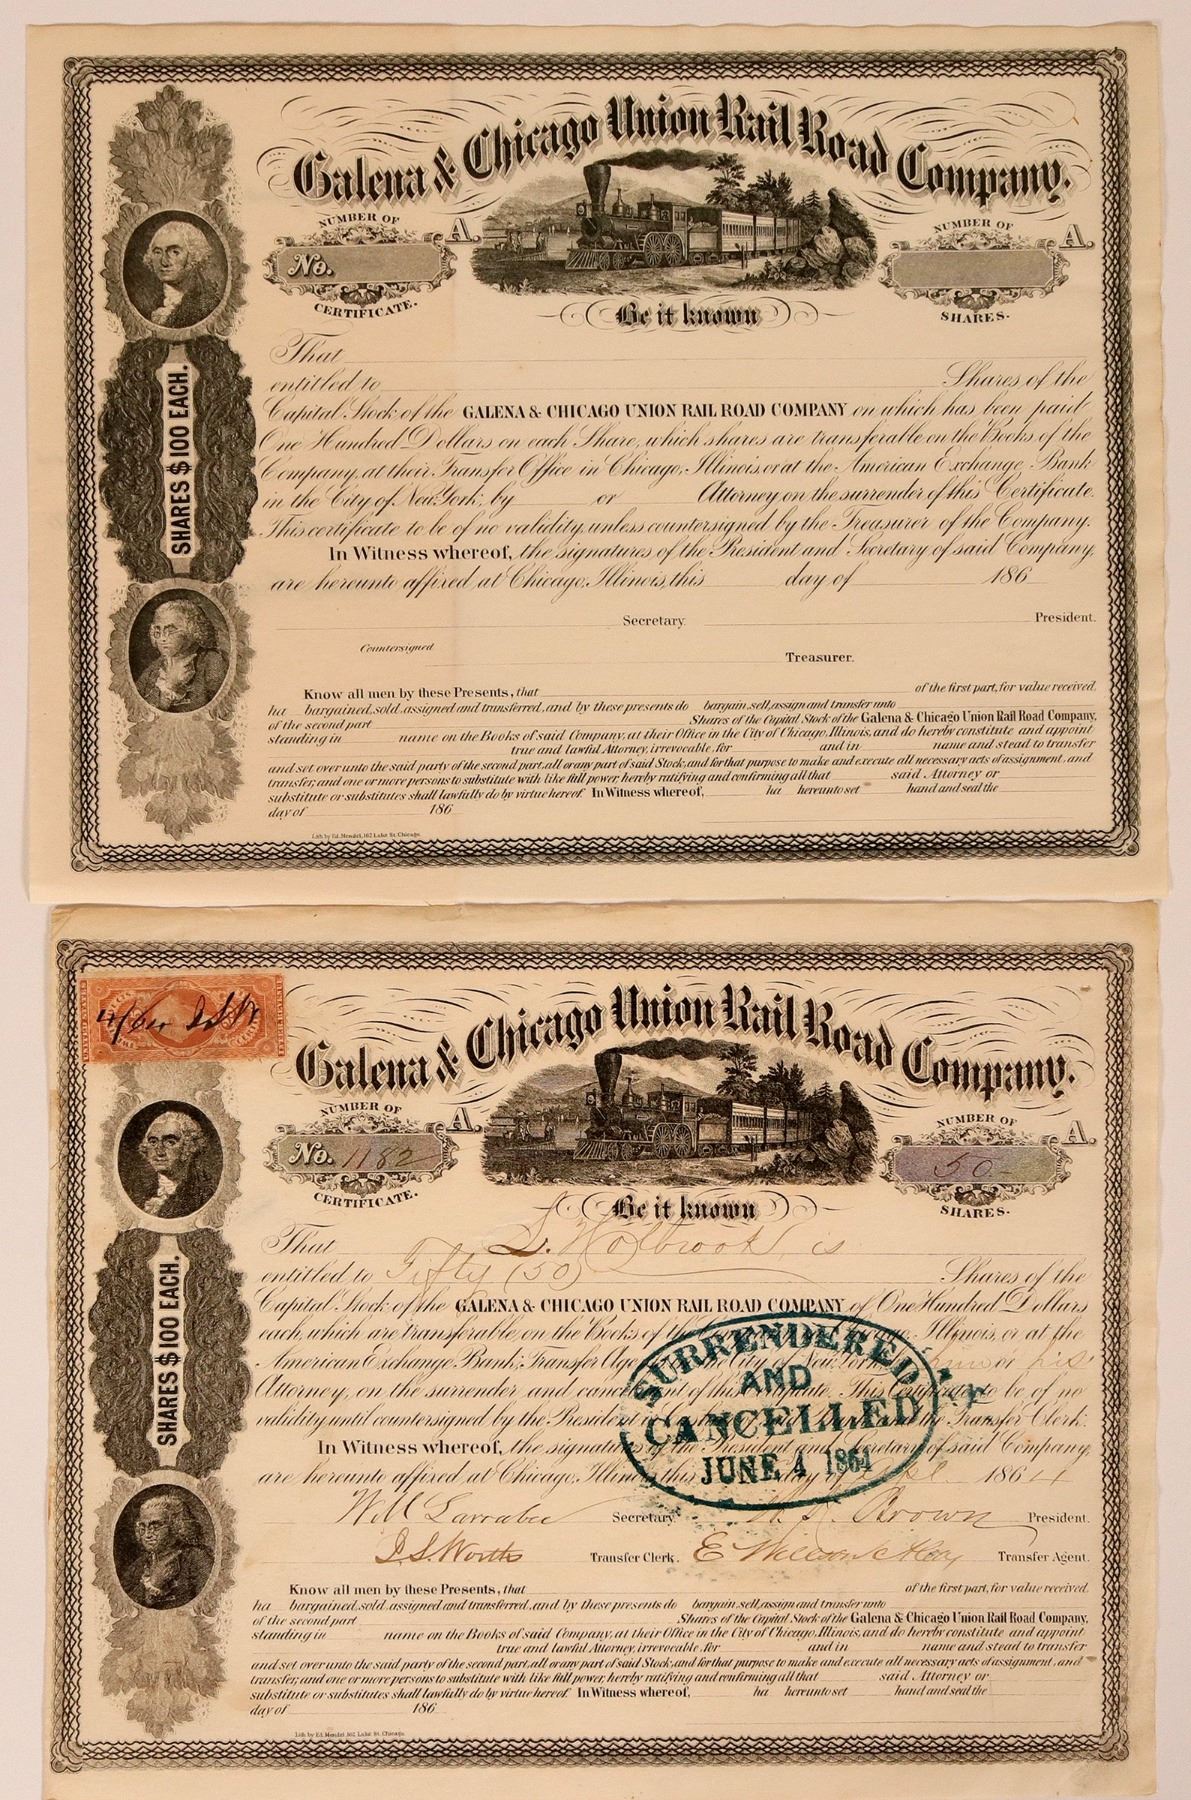 Galena & Chicago Union Rail Road Company.
NUMBER OF
A.
NUMBER OF
A.
No.
CERTIFICATE.
SHARES.
Be it known
SHARES $100 EACH.
That
entitled to Shares of the
Capital Stock of the GALENA & CHICAGO UNION RAIL ROAD COMPANY on which has been paid
One Hundred Dollars on each Share, which shares are transferable on the Books of the
Company, at their Transfer Office in Chicago, Illinois, or at the American Exchange Bank
in the City of New York, by or Attorney on the surrender of this Certificate.
This certificate to be of no validity, unless countersigned by the Treasurer of the Company.
In Witness whereof, the signatures of the President and Secretary of said Company,
are hereunto affixed, at Chicago, Illinois, this day of 186
Secretary. President.
Countersigned Treasurer.
Know all men by these Presents, that of the first part, for value received,
ha bargained, sold, assigned and transferred, and by these presents do bargain, sell, assign and transfer unto
of the second part Shares of the Capital Stock of the Galena & Chicago Union Rail Road Company,
standing in name on the Books of said Company, at their Office in the City of Chicago, Illinois, and do hereby constitute and appoint
true and lawful Attorney, irrevocable, for and in name and stead to transfer
and set over unto the said party of the second part, all or any part of said Stock, and for that purpose to make and execute all necessary acts of assignment, and
transfer, and one or more persons to substitute with like full power, hereby ratifying and confirming all that said Attorney or
substitute or substitutes shall lawfully do by virtue hereof. In Witness whereof, ha hereunto set hand and seal the
day of 186
Lith by Ed. Mendel, 162 Lake St. Chicago.
Galena & Chicago Union Rail Road Company.
NUMBER OF
A.
NUMBER OF
A.
No. 1182
50
CERTIFICATE.
SHARES.
Be it known
SHARES $100 EACH.
That S. Holbrook is
entitled to Fifty (50) Shares of the
Capital Stock of the GALENA & CHICAGO UNION RAIL ROAD COMPANY of One Hundred Dollars
each, which are transferable, on the Books of the Illinois, or at the
American Exchange Bank, Transfer the City of New York him or his
Attorney, on the surrender and of this This Certificate to be of no
validity until countersigned by the Transfer Clerk.
In Witness whereof, the signatures of the President and Secretary of said Company,
are hereunto affixed, at Chicago, Illinois, this 1864
SURRENDERED
AND
CANCELLED
JUNE 4 1864
Wm Larrabee Secretary. Brown President.
J S Worth Transfer Clerk. E Transfer Agent.
Know all men by these Presents, that of the first part, for value received,
ha bargained, sold, assigned and transferred, and by these presents do bargain, sell, assign and transfer unto
of the second part Shares of the Capital Stock of the Galena & Chicago Union Rail Road Company,
standing in name on the Books of said Company, at their Office in the City of Chicago, Illinois, and do hereby constitute and appoint
true and lawful Attorney, irrevocable, for and in name and stead to transfer
and set over unto the said party of the second part, all or any part of said Stock, and for that purpose to make and execute all necessary acts of assignment, and
transfer, and one or more persons to substitute with like full power, hereby ratifying and confirming all that said Attorney or
substitute or substitutes shall lawfully do by virtue hereof. In Witness whereof, ha hereunto set hand and seal the
day of 186
Lith by Ed. Mendel 162 Lake St. Chicago.